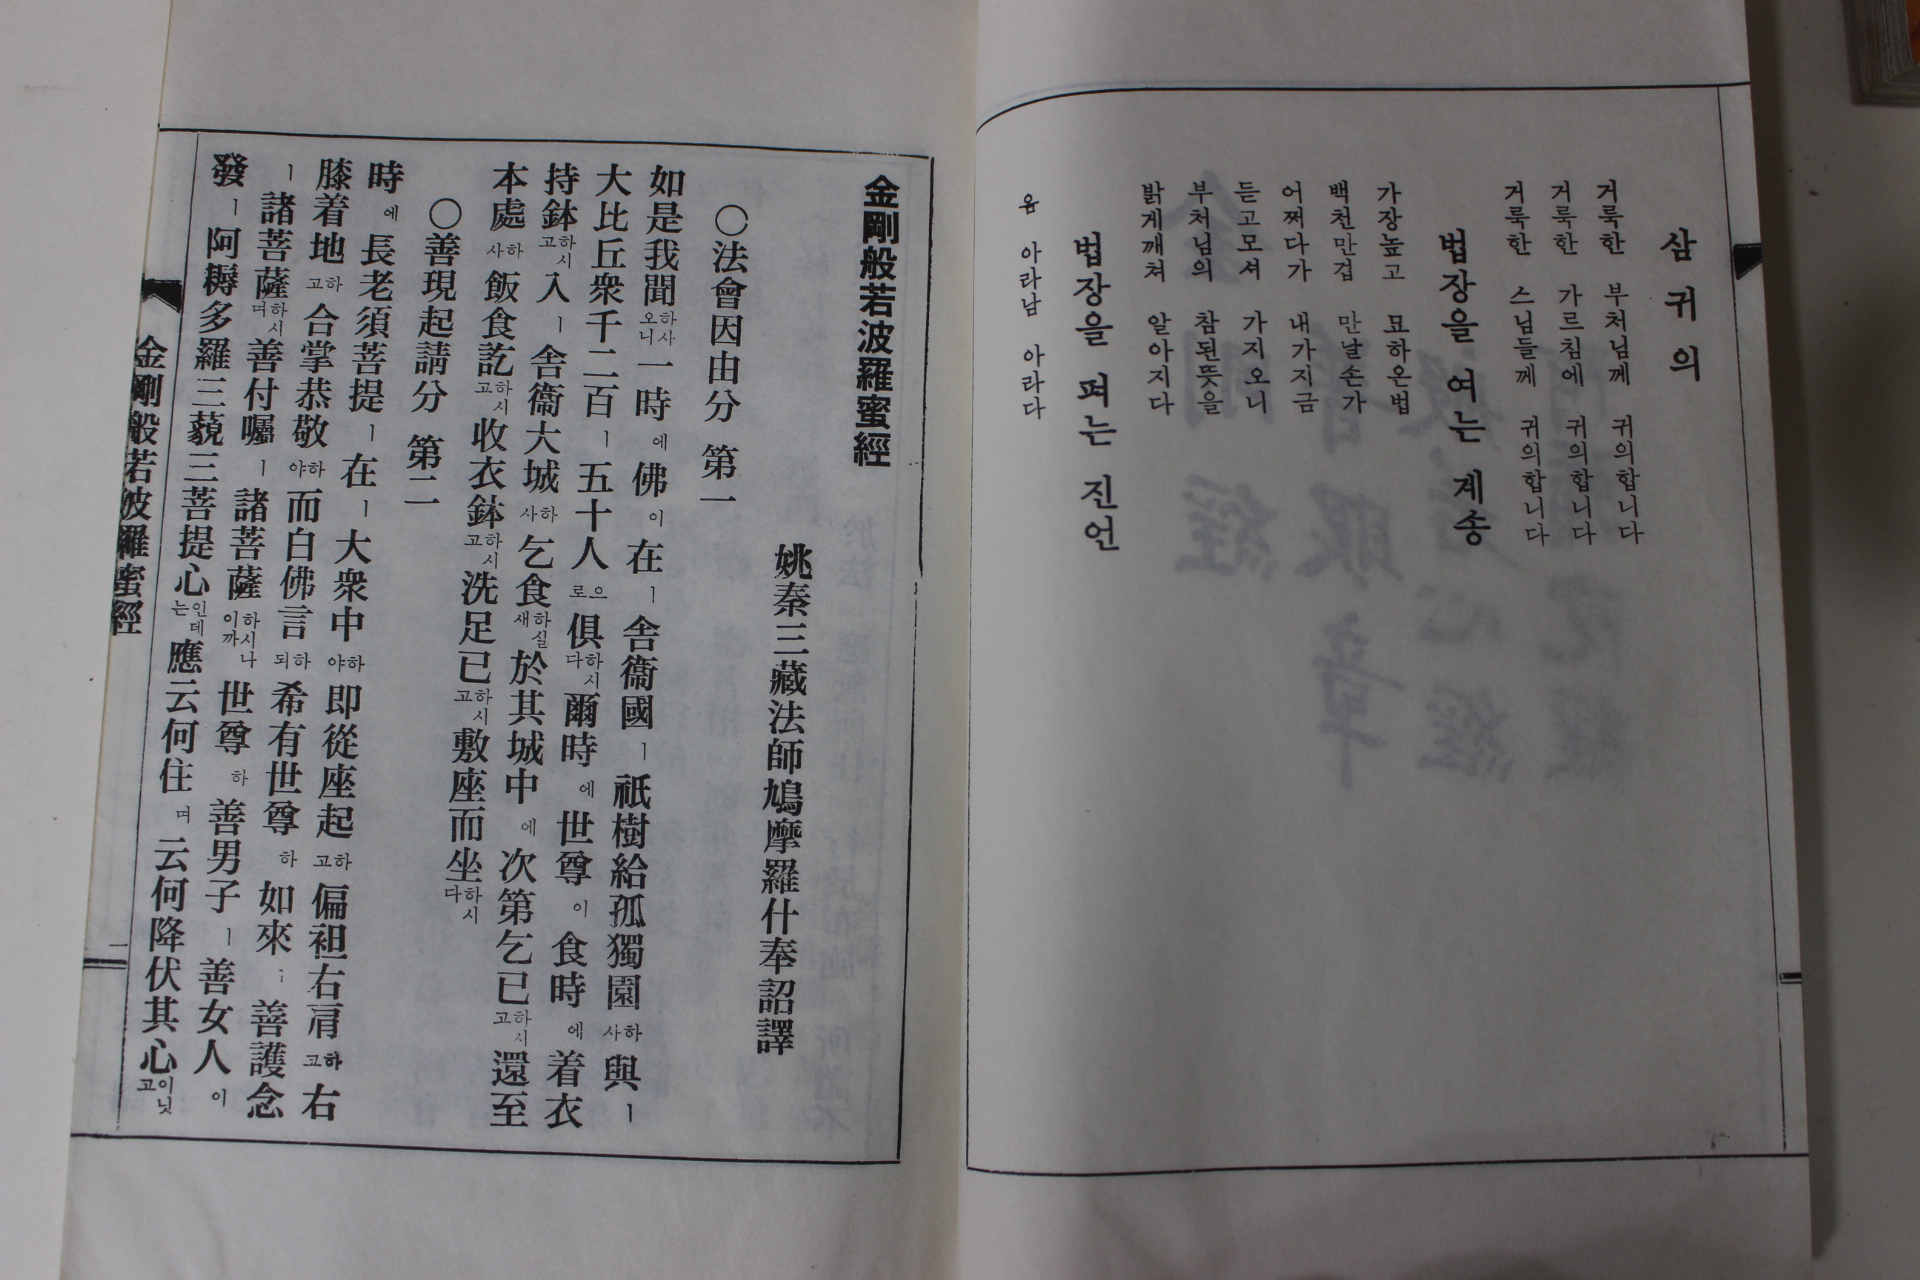 삼귀의
거룩한 부처님께 귀의합니다
거룩한 가르침에 귀의합니다
거룩한 스님들께 귀의합니다
법장을 여는 게송
가장높고 묘하온법
백천만겁 만날손가
어쩌다가 내가지금
듣고모셔 가지오니
부처님의 참된뜻을
밝게깨쳐 알아지다
법장을 펴는 진언
옴 아라남 아라다
金剛般若波羅蜜經
姚秦三藏法師鳩摩羅什奉詔譯
○法會因由分 第一
如是我聞하사오니一時에佛이在ㅣ舍衞國ㅣ祇樹給孤獨園하사與ㅣ
大比丘衆千二百ㅣ五十人으로俱하시다爾時에世尊이食時에着衣
持鉢하시고入ㅣ舍衞大城하사乞食하실새於其城中에次第乞已하시고還至
本處하사飯食訖하시고收衣鉢하시고洗足已하시고敷座而坐하시다
○善現起請分 第二
時에長老須菩提ㅣ在ㅣ大衆中하야即從座起하고偏袒右肩하고右
膝着地하고合掌恭敬하야而白佛言하되希有世尊하如來ㅣ善護念
ㅣ諸菩薩하시며善付囑ㅣ諸菩薩하시나이까世尊하善男子ㅣ善女人이
發ㅣ阿耨多羅三藐三菩提心인데는應云何住며云何降伏其心이닛고
金剛般若波羅蜜經
一